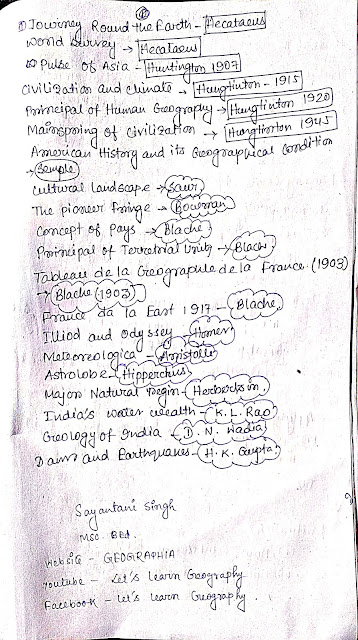 1) Journey Round the Earth - Hecataeus
World Survey → Hecataeus
Pulse of Asia - Huntington 1907
Civilization and climate → Hungtinton - 1915
Principal of Human Geography → Hungtinton 1920
Mainspring of Civilization → Hungtinton 1945
American History and its Geographical Condition
→ Semple
Cultural landscape → Saur
The pioneer fringe → Bowman
Concept of Pays → Blache
Principal of Terrestrial Unity → Blach
Tableau de la Geographie de la France (1903)
→ Blache (1903)
France da la East 1917 - Blache
Illiod and Odyssey - Homer
Meteoreologica - Aristotle
Astrolobe - Hipperchus
Major Natural Regin - Herberkson
India's water wealth - K.L. Rao
Geology of India - D. N. Wadia
Dams and Earthquakes - H. K. Gupta
Sayantani Singh
MSC BEd.
Website - GEOGRAPHIA
Youtube - Let's Learn Geography
Facebook - Let's Learn Geography.